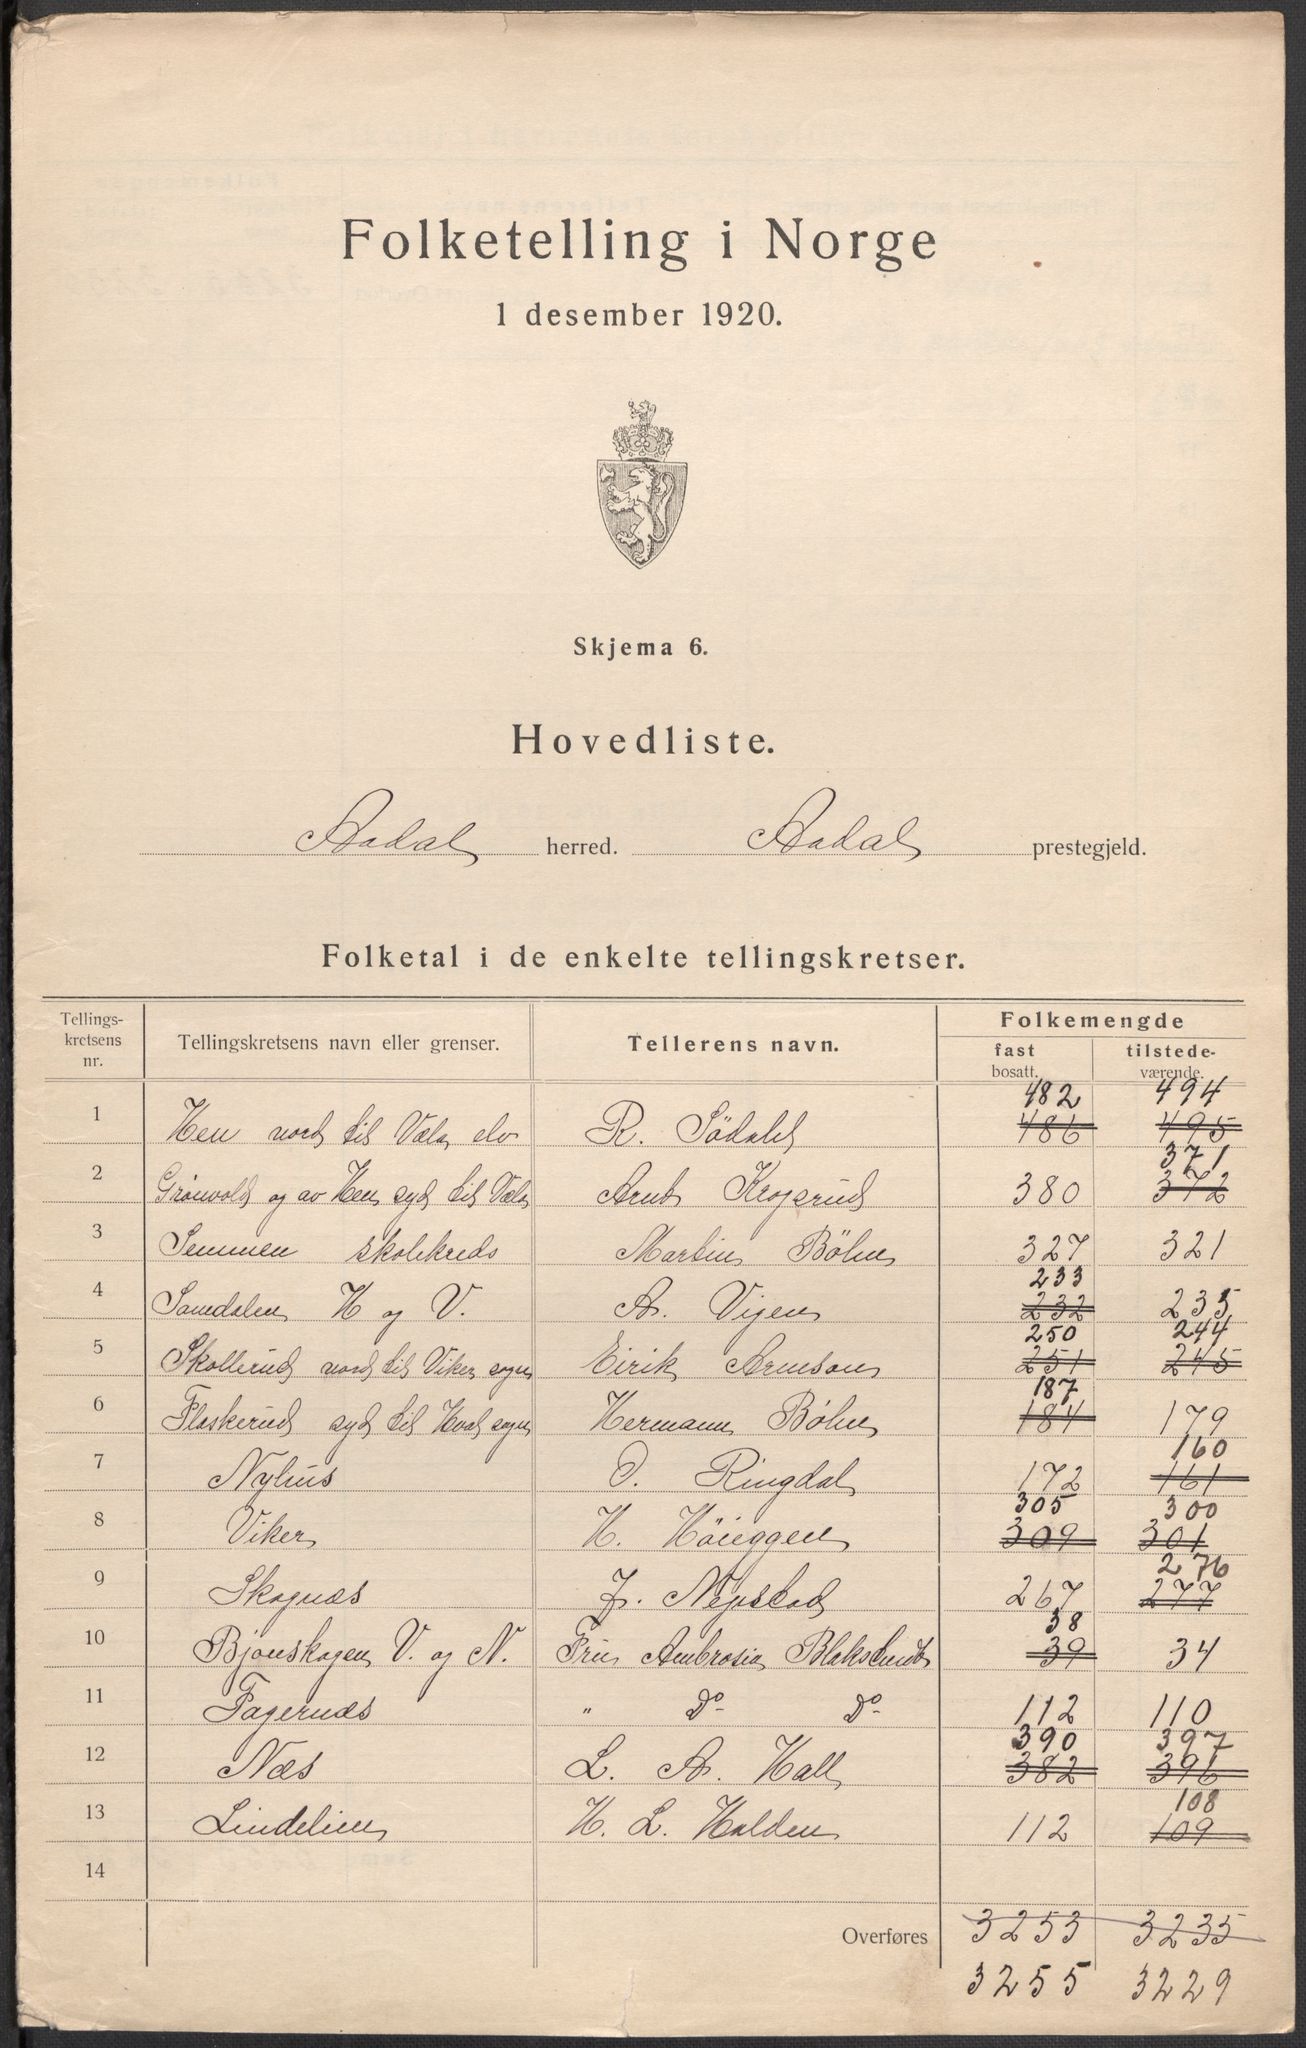 Folketelling i Norge
1 desember 1920.
Skjema 6.
Hovedliste.
Aadal herred. Aadal prestegjeld.
Folketal i de enkelte tellingskretser.
Tellings-
kretsens
nr.
Tellingskretsens navn eller grenser.
Tellerens navn.
Folkemengde
fast
bosatt.
tilstede-
værende.
482 494
1 Hen nord til Væla elv R. Södahl 486 495
371
2 Grönvold og av Hen syd til Væla Arnt Kropsrud 380 372
3 Semmen skolekreds Martin Böhn 327 321
233
4 Somdalen H og V. A. Vigen 232 235
250 244
5 Skollerud nord til Viker sogn Eirik Arneson 251 245
187
6 Flaskerud syd til Hval sogn Hermann Bøhn 184 179
160
7 Nyhus O. Ringdal 172 161
305 300
8 Viker H. Höieggen 309 301
276
9 Skognæs J. Nepstad 267 277
38
10 Bjonskogen V. og N. Fru Ambrosia Blakstvedt 39 34
11 Fagernæs " Do Do 112 110
390 397
12 Næs L. A. Hall 382 396
108
13 Lindelien H. L. Halden 112 109
14
Overføres 3253 3235
3255 3229